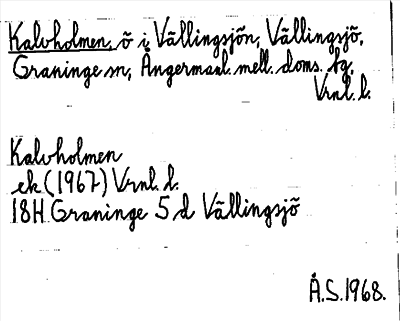 Kalvholmen, ö i Vällingsjön, Vällingsjö,
Graninge sn, Ångermanl. mell. doms. tg,
Vrnl. l.
Kalvholmen
ek (1967) Vrnl. l.
18H Graninge 5 d Vällingsjö
Å.S.1968.